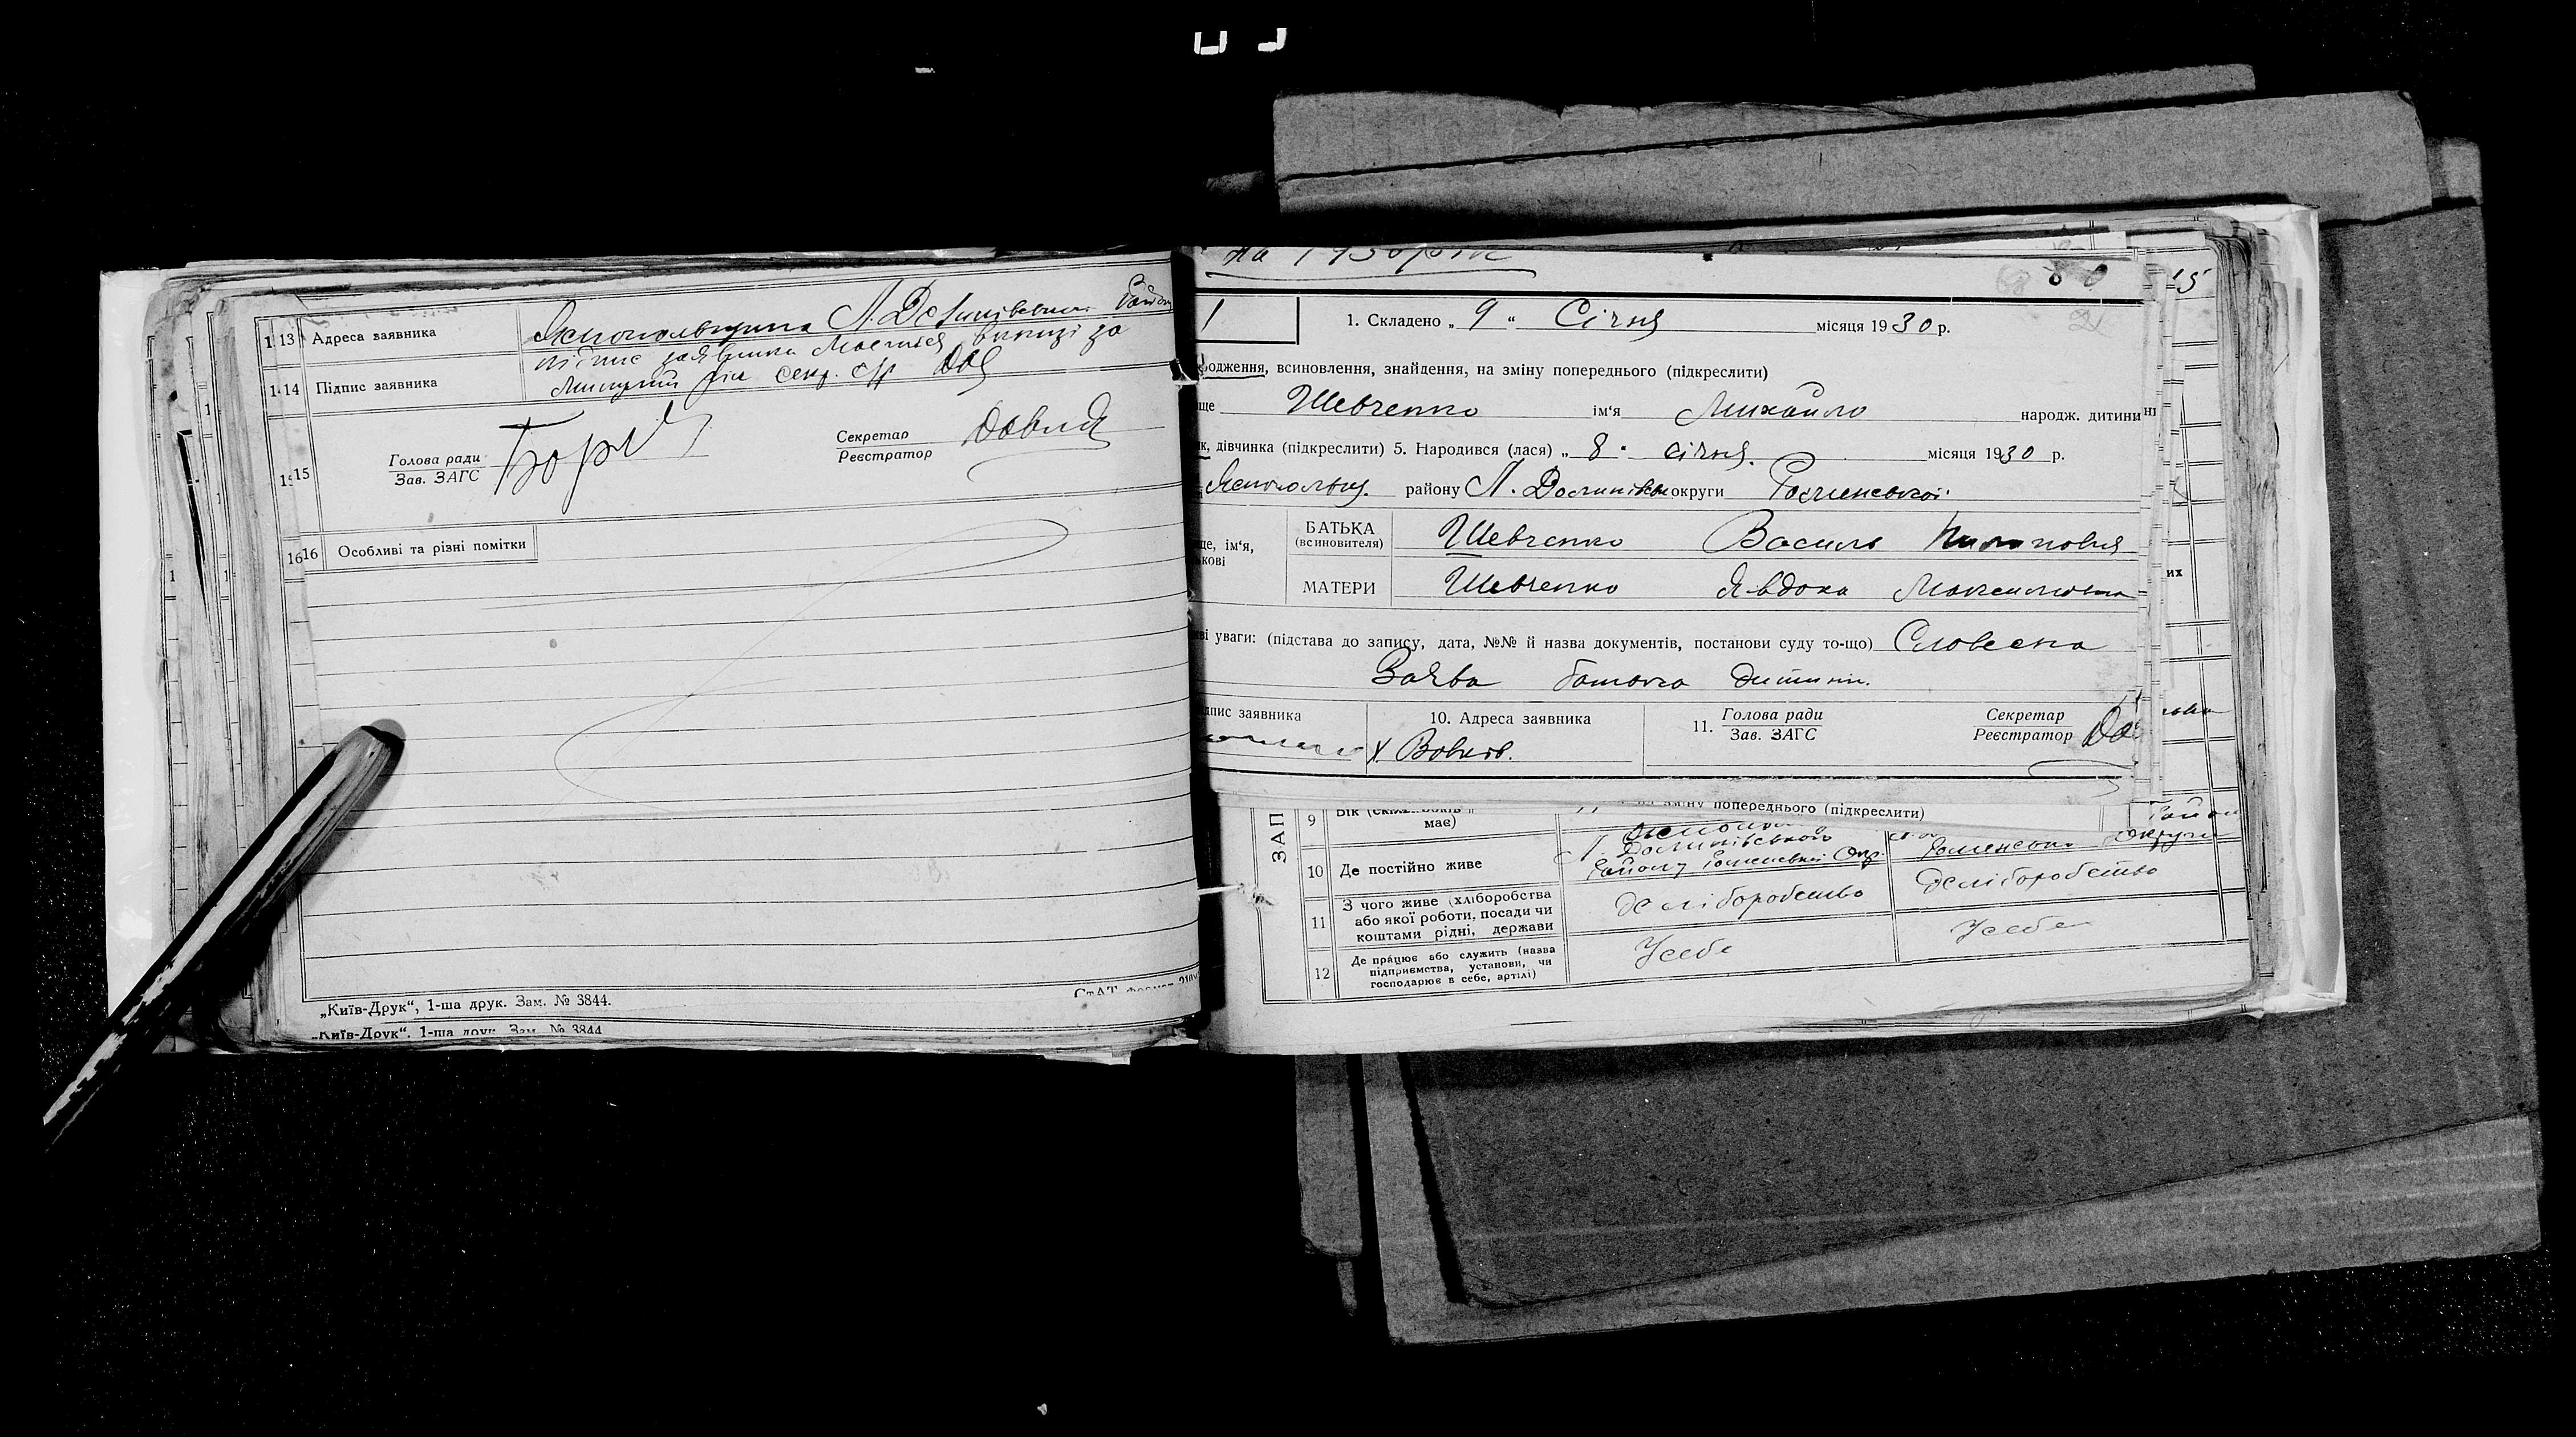 13 Адреса заявника Яснопольщина Л. Долинівськ. Район
14 Підпис заявника
підпис заявника
секр. с/р
15 Голова ради
Зав. ЗАГС
Секретар
Реєстратор
16 Особливі та різні помітки
„Київ-Друк“, 1-ша друк. Зам. № 3844.
„Київ-Друк“, 1-ша друк. Зам. № 3844
на 1930 рік
80
1
1. Складено „ 9 “ Січня місяця 1930 р.
родження, всиновлення, знайдення, на зміну попереднього (підкреслити)
ще Шевченко ім‘я Михайло народж. дитини
к, дівчинка (підкреслити) 5. Народився (лася) „ 8 “ січня місяця 1930 р.
Яснопольщ. району Л. Долинівськ округи Роменської
ще, ім‘я,
ькові
БАТЬКА
(всиновителя)
Шевченко Василь Пилипович
МАТЕРИ Шевченко Явдоха Максимовна
ві уваги: (підстава до запису, дата, №№ й назва документів, постанови суду то-що) Словесна
Заява батька дитини.
дпис заявника
10. Адреса заявника
х. Вовків.
11. Голова ради
Зав. ЗАГС
Секретар
Реєстратор
их
15
на зміну попереднього (підкреслити)
ЗАП
9
має)
10 Де постійно живе
Л. Долинівського
Району Роменської Окр.
Роменської Округи
11 З чого живе (хліборобства
або якої роботи, посади чи
коштами рідні, держави
хліборобство хліборобство
12 Де працює або служить (назва
підприємства, установи, чи
господарює в себе, артілі)
У себе У себе